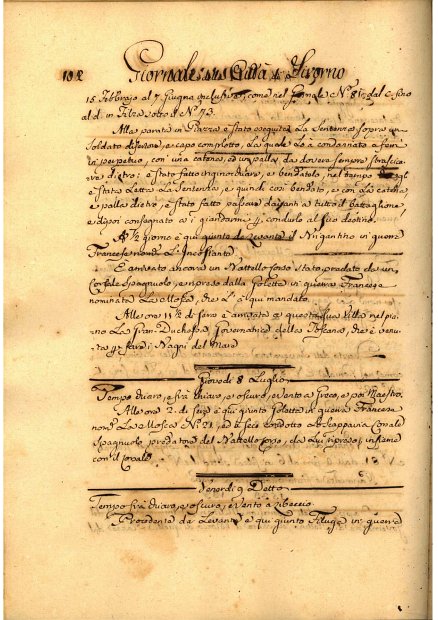 102 Giornale della Città di Livorno
15. Febbrajo al 7 Giugno inclusive, come nel Giornale N.° 81, dal C. fino
al d. in Filza sotto il N.° 73.
Alla parata in Piazza è stato eseguita la Sentenza sopra un
Soldato disertore, e capo complotto, la quale lo à condannato a ferri
in perpetuo, con una catena, ed un palla da dover sempre strasci-
arve dietro: è stato fatto inginocchiare, e bendatolo, nel tempo
è stata Letta La Sentenza, e quindi così bendato, e con La catena,
e palla dietro, è stato fatto passare davanti a tutto il battaglione,
e dipoi consegnato a i giandarmi p. condurlo al suo destino.
A 1/2 giorno è qui giunto da Levante il Brigantino in guerra
Francese nom.° L'Incostante
È arrivato ancora un Battello corso stato predato da un
Corsale Spagnuolo, e ripreso dalla Goletta in guerra Francese
nominata La Mosca, che L'à qui mandato.
Alle ore 11 1/2 di sera è arrivata a questa sua Villa nel pia-
no La Gran-Duchessa Governatrice della Toscana, che è venu-
ta p. fare i Bagni del Mare
Giovedì 8 Luglio
Tempo chiaro, e frà chiaro, e oscuro, e vento a Greco, e poi Maestro.
Alle ore 2. di sera è qui giunta Goletta in guerra Francese
nom.ª La Mosca N.° 21, ed à seco condotto La Scappavia Corsale
Spagnuolo predatore del Battello corso, da Lui ripreso, insieme
con il Corsale
Venerdì 9 Detto
Tempo frà chiaro, e oscuro, e vento a Libeccio.
Procedente da Levante è qui giunto Filuga in guerra